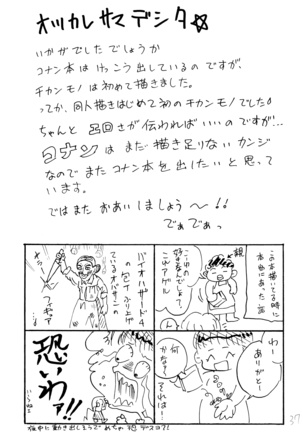 オツカレサマデシタ☆
いかがでしたでしょうか
コナン本はけっこう出しているのですが、
チカンモノは初めて描きました。
ってか、同人描きはじめて初のチカンモノでした!
ちゃんとエロさが伝わればいいのですが…
コナンはまだ描き足りないカンジ
なのでまたコナン本を出したいと思って
います。
ではまたおあいしましょう〜!!
でぁでぁっ
この本描いてる時に
本当にあった話
親
こーゆの
好きなんでしょ?
これアゲル
わー
ありがと〜
何かな?
それは…
バイオハザード4
の包丁ふり上げ
ているオバサンの
フィギュア
恐いわァ!!
37